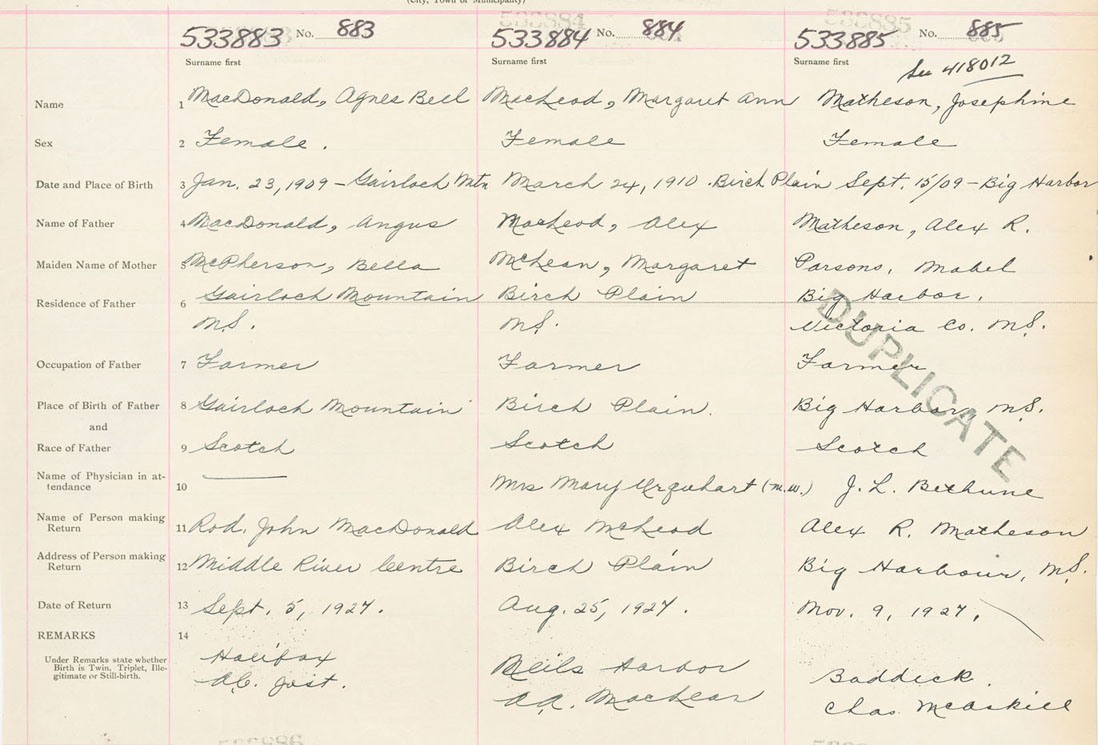 (City, Town or Municipality)
533883 No. 883 533884 No. 884 533885 No. 885
Surname first Surname first Surname first See 418012
Name 1 MacDonald, Agnes Bell MacLeod, Margaret Ann Matheson, Josephine
Sex 2 Female. Female Female
Date and Place of Birth 3 Jan. 23, 1909 – Gairloch Mtn March 24, 1910. Birch Plain Sept. 15/09 – Big Harbor
Name of Father 4 MacDonald, Angus MacLeod, Alex Matheson, Alex R.
Maiden Name of Mother 5 McPherson, Bella McLean, Margaret Parsons, Mabel
Residence of Father 6 Gairloch Mountain Birch Plain Big Harbor,
N.S. N.S. Victoria Co. N.S.
DUPLICATE
Occupation of Father 7 Farmer Farmer Farmer
Place of Birth of Father 8 Gairloch Mountain Birch Plain. Big Harbor, N.S.
and
Race of Father 9 Scotch Scotch Scotch
Name of Physician in at-
tendance 10 Mrs Mary Urquhart (M.W.) J. L. Bethune
Name of Person making
Return 11 Rod. John MacDonald Alex McLeod Alex R. Matheson
Address of Person making
Return 12 Middle River Centre Birch Plain Big Harbour, N.S.
Date of Return 13 Sept. 5, 1927. Aug. 25, 1927. Nov. 9, 1927.
REMARKS 14
Under Remarks state whether
Birth is Twin, Triplet, Ille-
gitimate or Still-birth.
Halifax Neils Harbor Baddeck.
A.C. Jost. A.A. MacLean Chas. McAskill